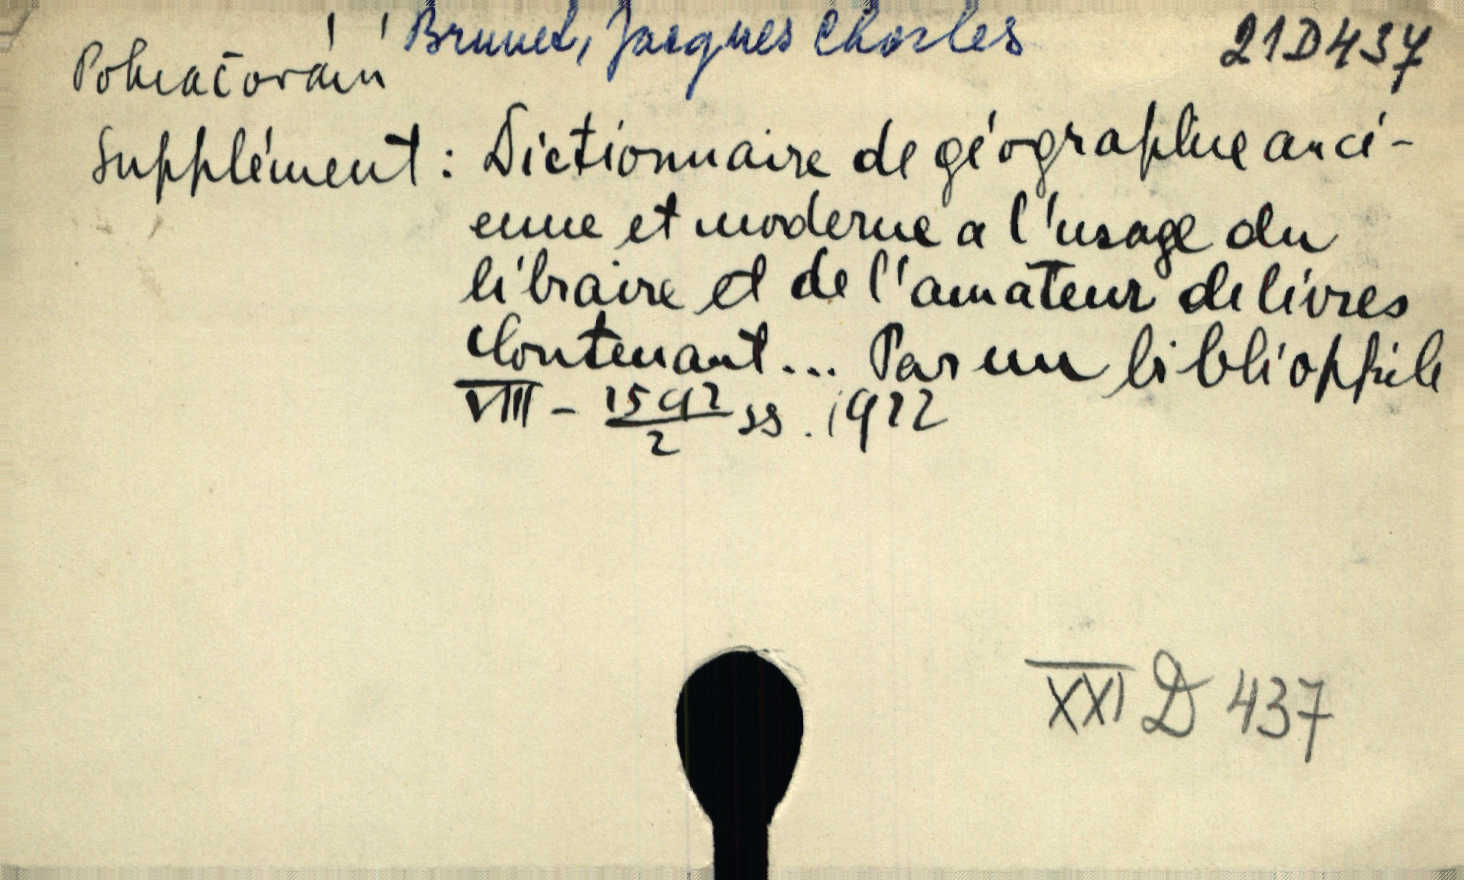 Brunet, Jacques Charles 21D437
Pokračování
Supplément : Dictionnaire de géographie anci-
enne et moderne a l'usage du
libraire et de l'amateur de livres
Contenant... Par un bibliophile
VIII - 1592/2 ss. 1922
XXI D 437